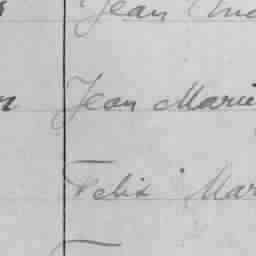 Jean
Jean Marie
Felix Mar